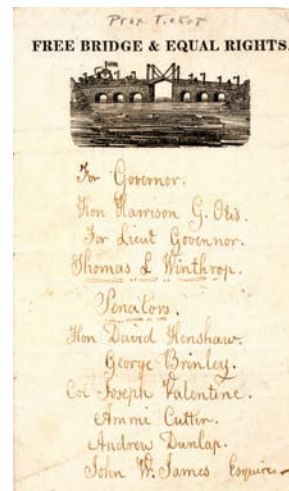 Prox Ticket
FREE BRIDGE & EQUAL RIGHTS.
For Governor.
Hon Harrison G. Otis.
For Lieut Governnor.
Thomas L Winthrop.
Senators.
Hon David Henshaw.
George Brinley.
Col Joseph Valentine.
Ammi Cutter.
Andrew Dunlap.
John W. James Esquires